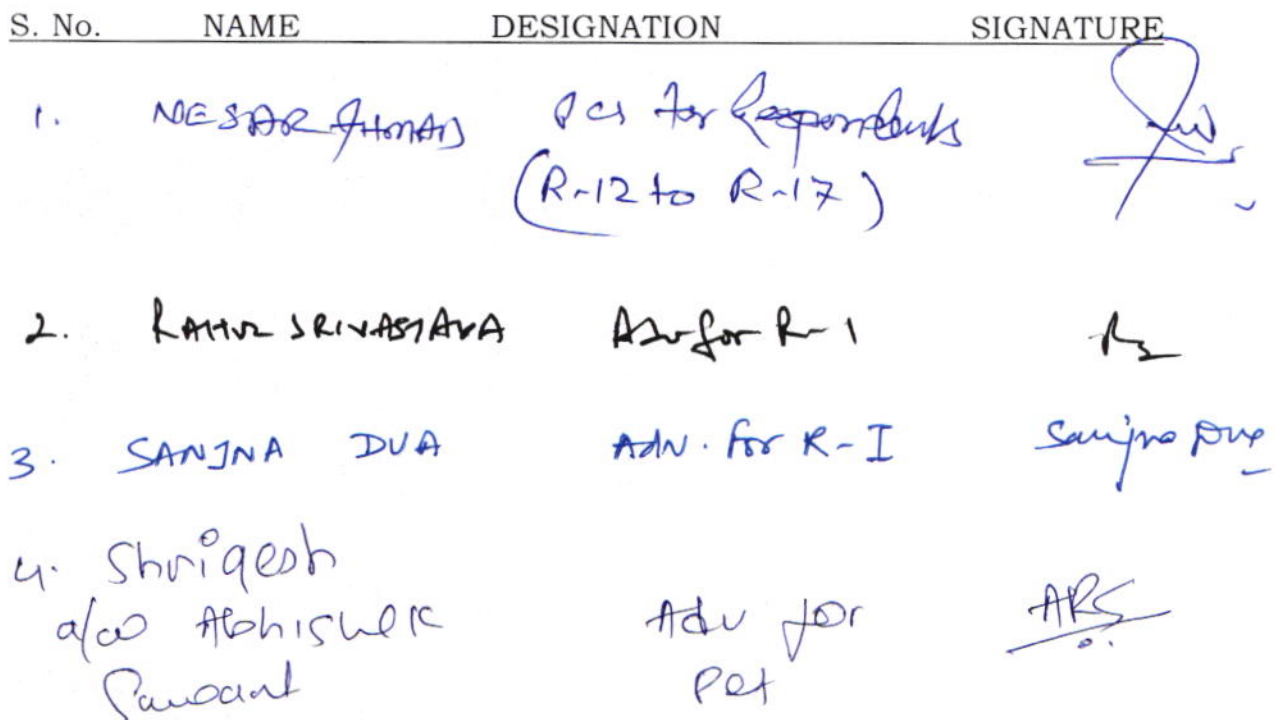 S. No. NAME DESIGNATION SIGNATURE
1. NESAR AHMAD PCS for Respondents
(R-12 to R-17)
2. RAHUL SRIVASTAVA Adv for R-1
3. SANJNA DUA Adv. for R-I Sanjna Dua
4. Shrigesh
a/w Abhishek Adv for ARS
Pet